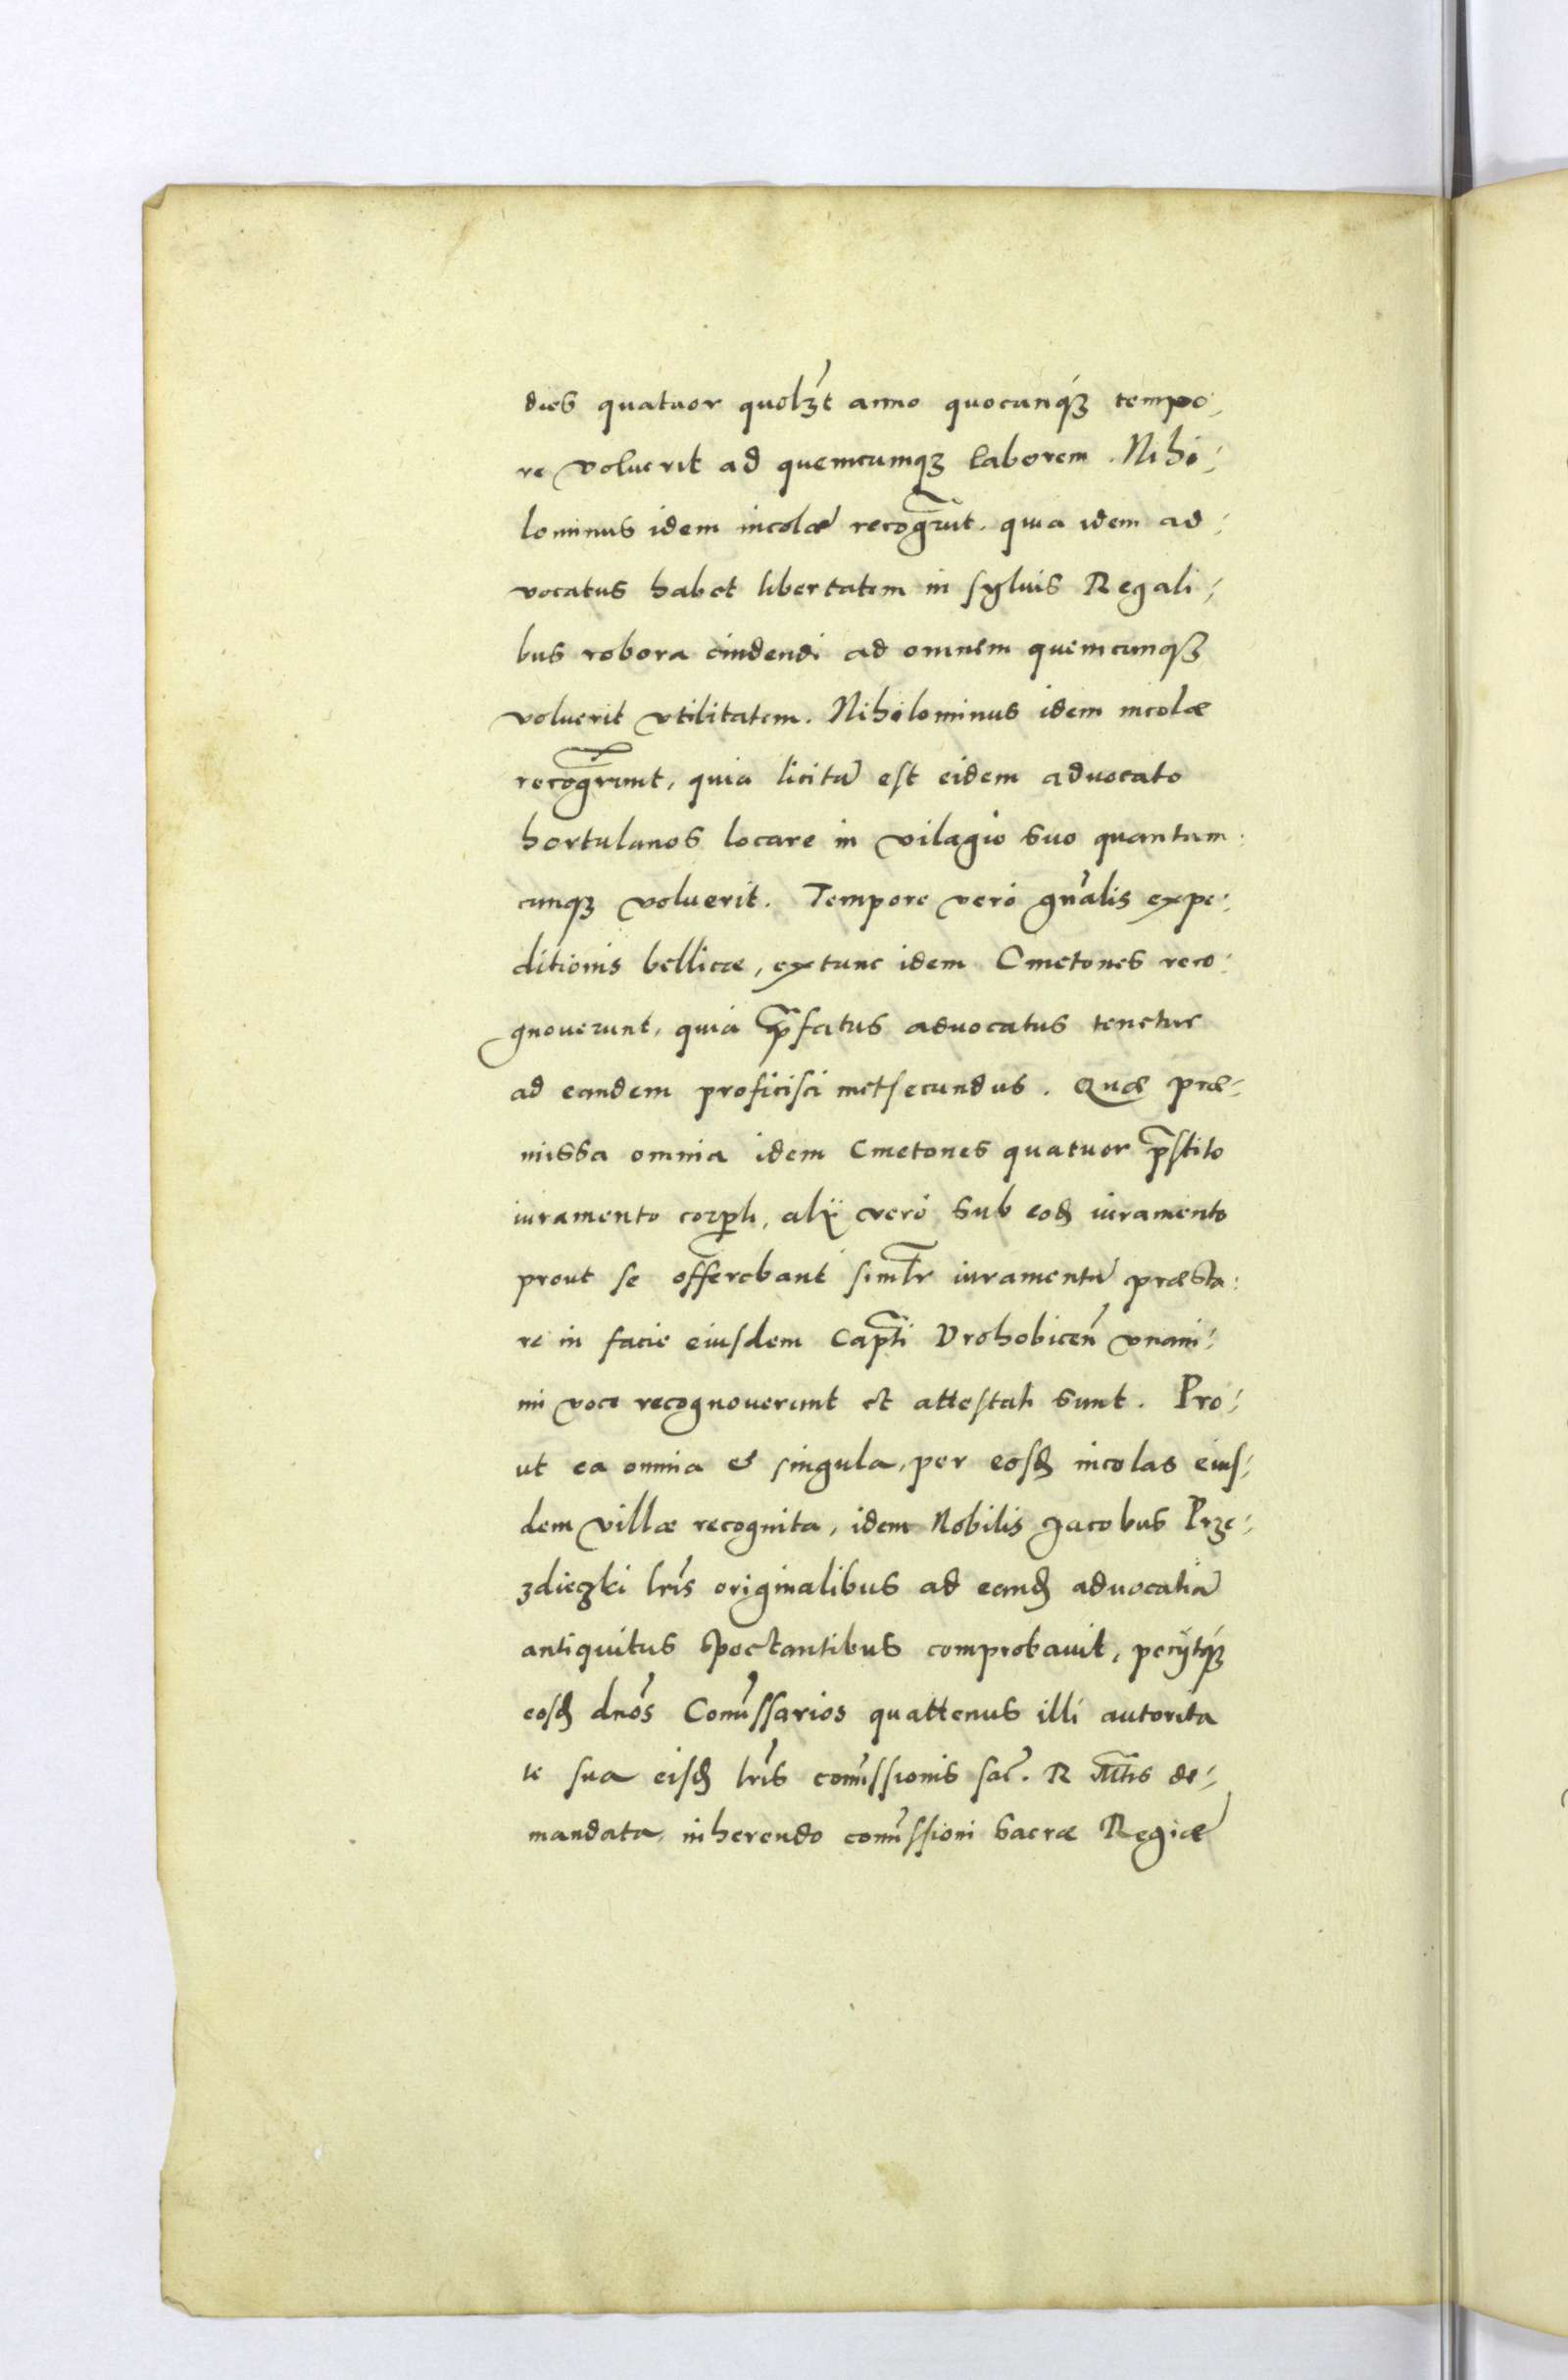 dies quatuor quolꝫt anno quocunqꝫ tempo⸗
re voluerit ad quemcumqꝫ laborem. Nihi⸗
lominus idem incolæ recogrūt. quia idem ad⸗
vocatus habet libertatem in syluis Regali⸗
bus robora cindendi ad omnem quemcunqꝫ
voluerit vtilitatem. Nihilominus idem incolæ
recogrunt, quia licitū est eidem aduocato
hortulanos locare in vilagio suo quantum⸗
cunqꝫ voluerit. Tempore vero gn̄alis expe⸗
ditionis bellicæ, extunc idem Cmetones reco⸗
gnouerunt, quia p̄fatus aduocatus tenetur
ad eandem proficisci metsecundus. Quæ præ⸗
missa omnia idem Cmetones quatuor p̄stito
iuramento corpli, alÿ vero sub eoḏ iuramento
prout se offerebant simlr̄ iuramentū præsta⸗
re in facie eiusdem Capt̄i Drohobiceñ vnani⸗
mi voce recognouerunt et attestati sunt. Pro⸗
ut ea omnia & singula, per eosḏ incolas eius⸗
dem villæ recognita, idem Nobilis Jacobus Prze⸗
zdieczki lr̄is originalibus ad eanḏ aduocatiā
antiquitus spectantibus comprobauit, pecÿtqꝫ
eosḏ dnōs Comīssarios quattenus illi autorita
te sua eisḏ lr̄is comīssionis sac̄. R Mtīs de⸗
mandata, inherendo comīssioni Sacræ Regiæ